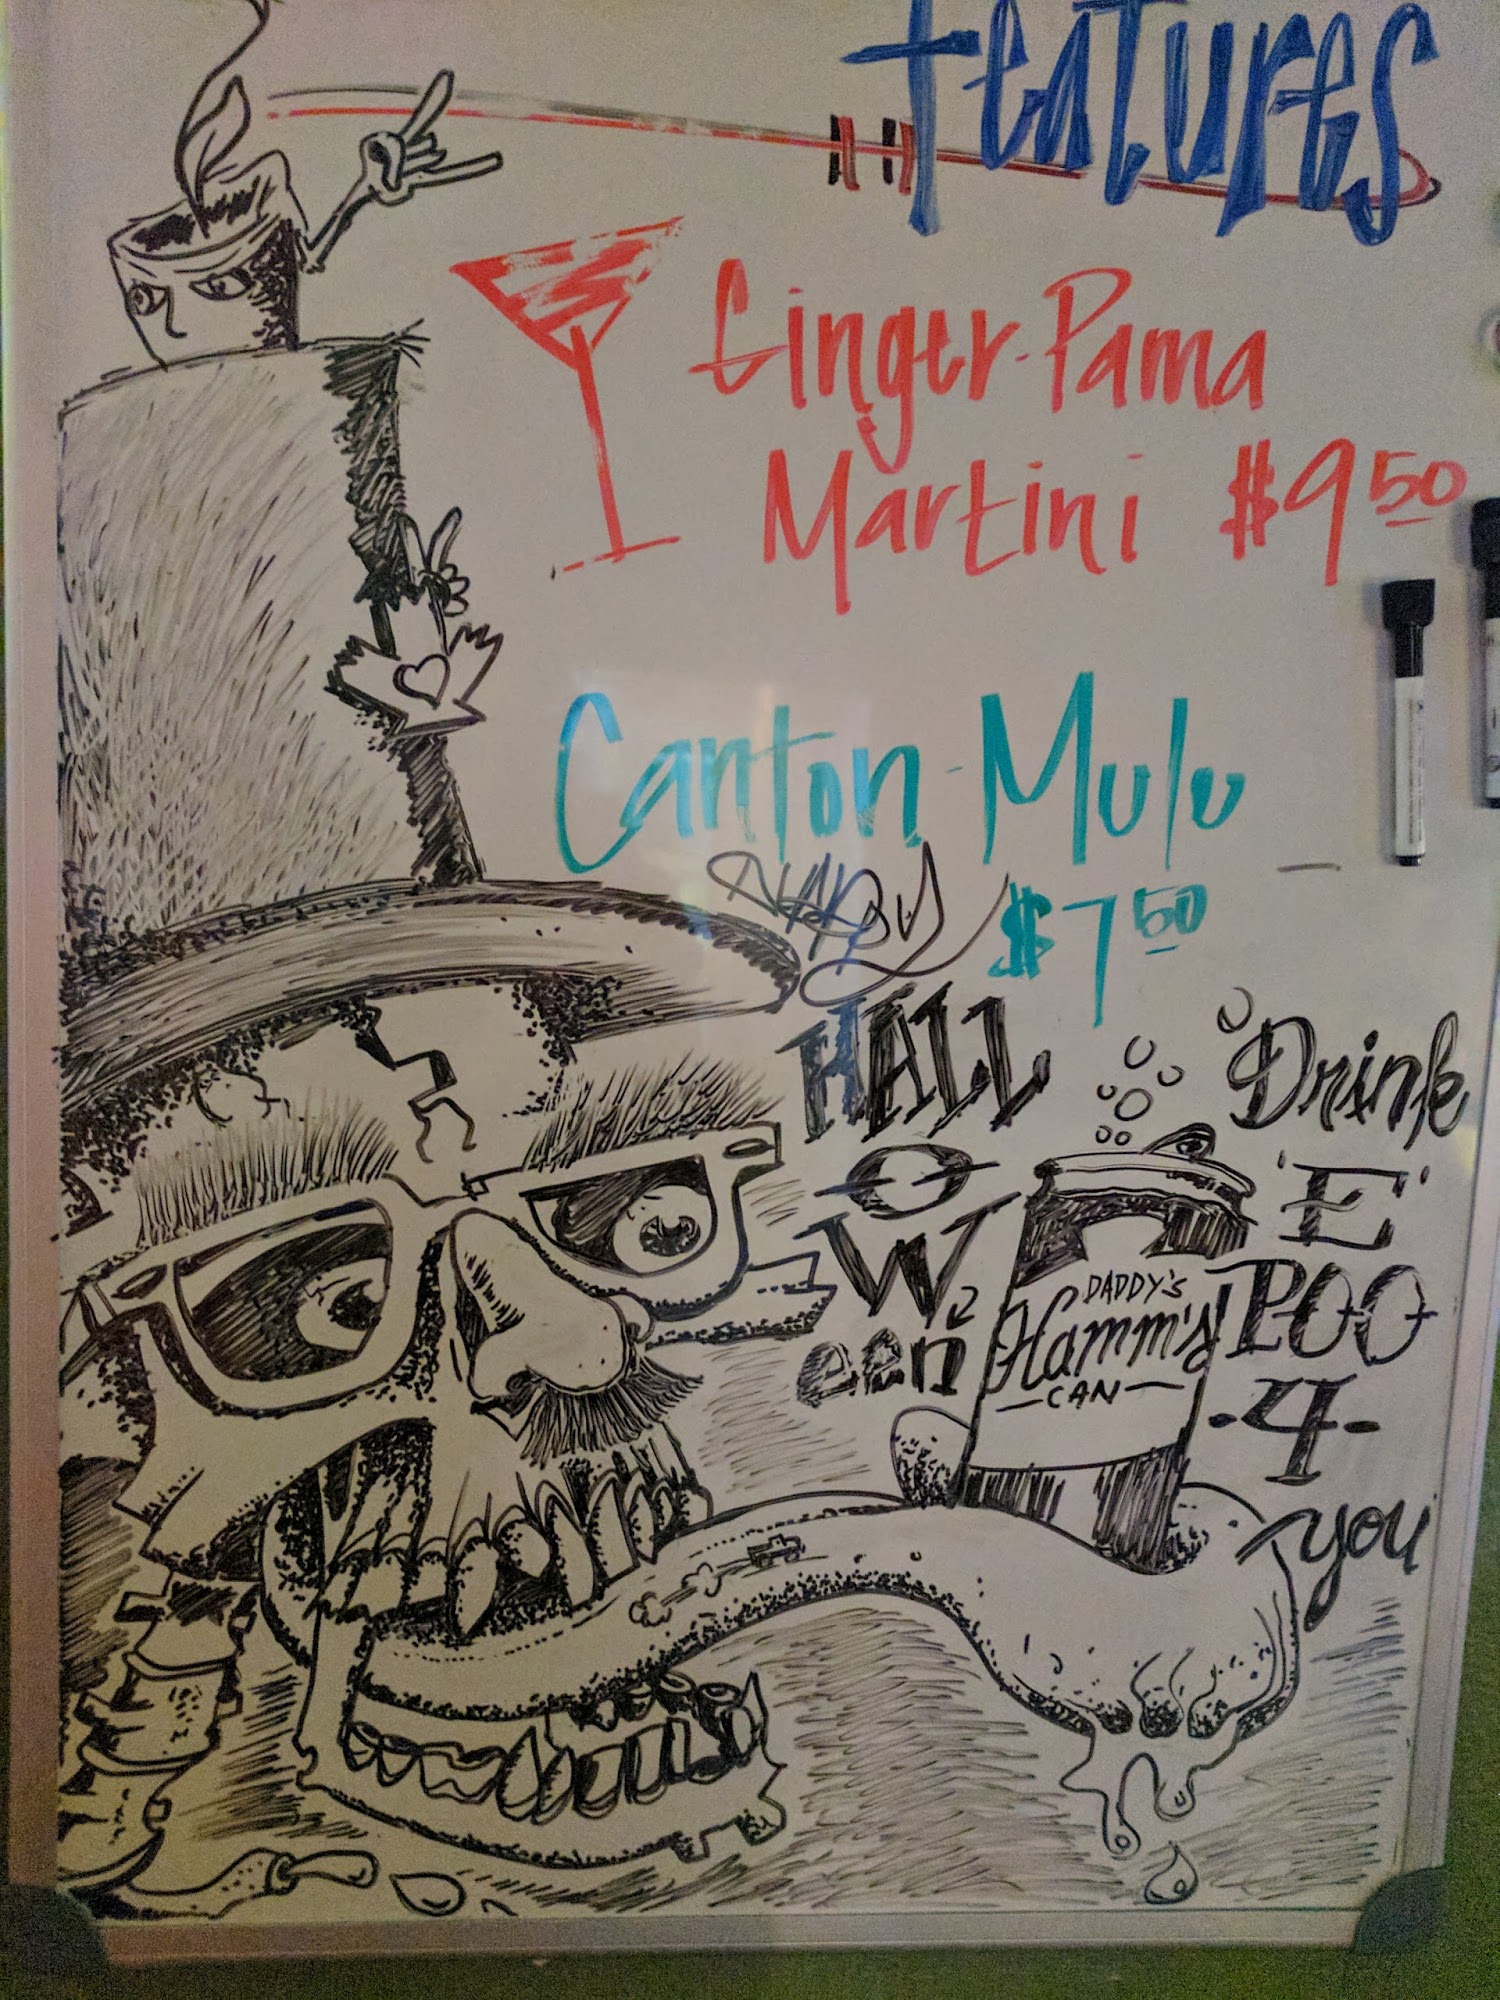 Features
Ginger-Pama
Martini $9 50
Canton-Mule
$7 50
HAPPY
HALL
O
W
een
Drink
'E'
POO
-4-
you
DADDY'S
Hamm's
-CAN-